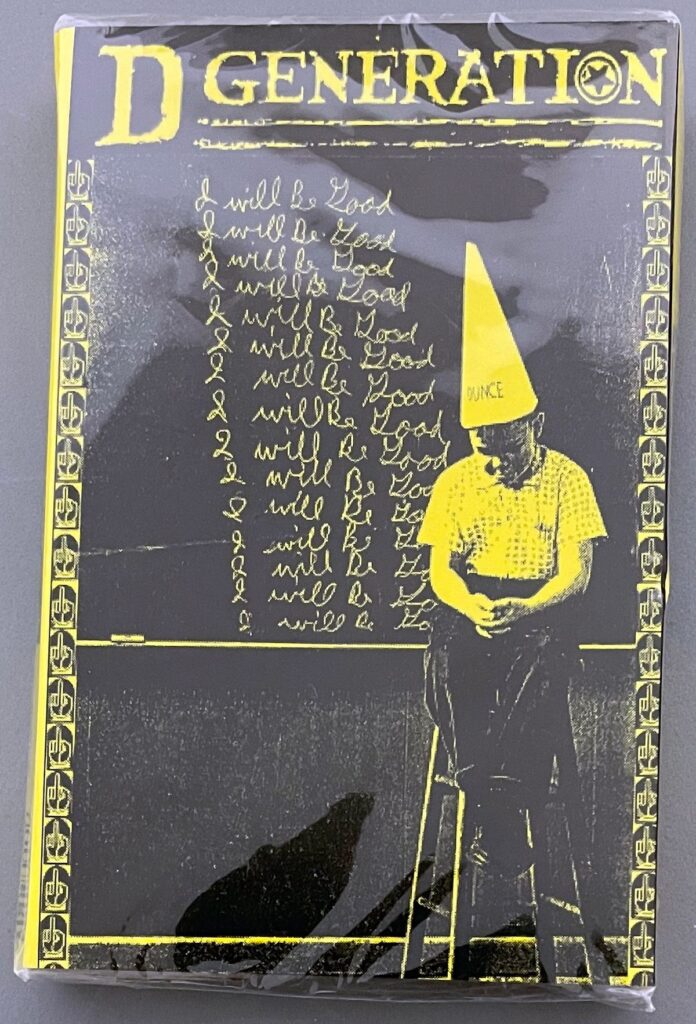 D GENERATION
I will Be Good
I will Be Good
I will Be Good
I will Be Good
I will Be Good
I will Be Good
I will Be Good
DUNCE
I will Be Good
I will Be Good
I will Be Goo
I will Be Go
I will Be G
I will Be Go
I will Be Go
I will Be Go